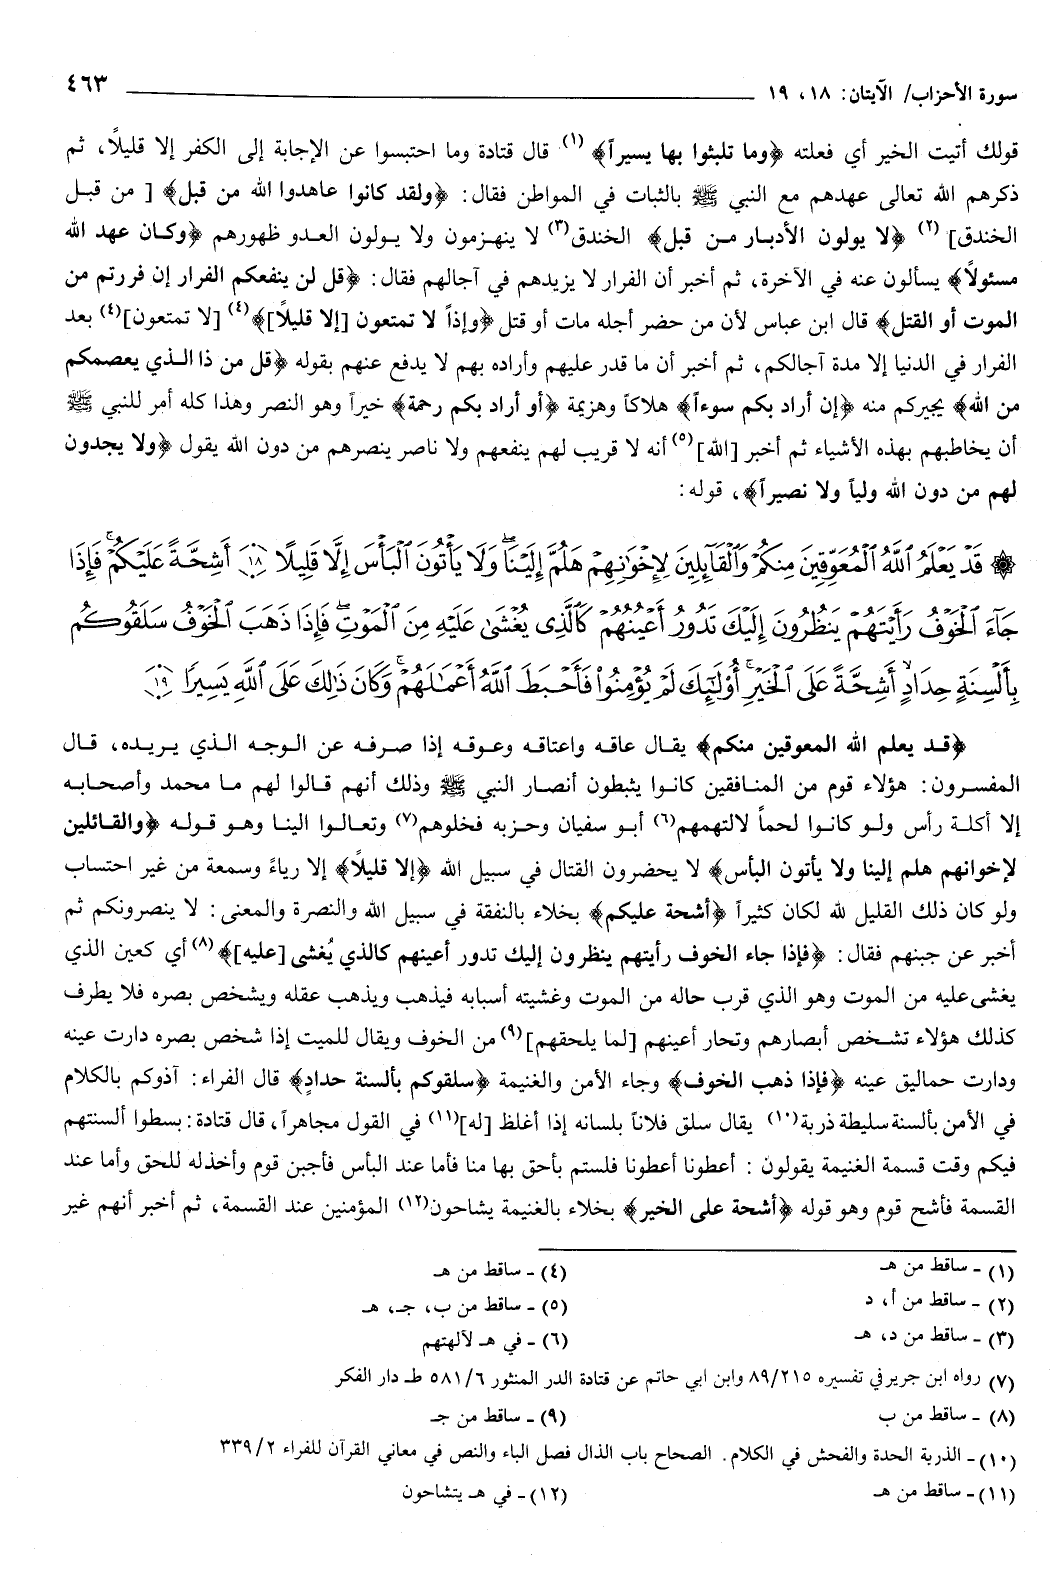 سورة الأحزاب/ الآيتان: ١٨، ١٩ ٤٦٣
قولك أتيت الخير أي فعلته ﴿وما تلبثوا بها يسيراً﴾ (١) قال قتادة وما احتبسوا عن الإجابة إلى الكفر إلا قليلاً، ثم
ذكرهم الله تعالى عهدهم مع النبي ﷺ بالثبات في المواطن فقال: ﴿ولقد كانوا عاهدوا الله من قبل﴾ [ من قبل
الخندق] (٢) ﴿لا يولون الأدبار من قبل﴾ الخندق(٣) لا ينهزمون ولا يولون العدو ظهورهم ﴿وكان عهد الله
مسئولاً﴾ يسألون عنه في الآخرة، ثم أخبر أن الفرار لا يزيدهم في آجالهم فقال: ﴿قل لن ينفعكم الفرار إن فررتم من
الموت أو القتل﴾ قال ابن عباس لأن من حضر أجله مات أو قتل ﴿وإذاً لا تمتعون [إلا قليلاً]﴾(٤) [لا تمتعون](٤) بعد
الفرار في الدنيا إلا مدة آجالكم، ثم أخبر أن ما قدر عليهم وأراده بهم لا يدفع عنهم بقوله ﴿قل من ذا الذي يعصمكم
من الله﴾ يجيركم منه ﴿إن أراد بكم سوءاً﴾ هلاكاً وهزيمة ﴿أو أراد بكم رحمة﴾ خيراً وهو النصر وهذا كله أمر للنبي ﷺ
أن يخاطبهم بهذه الأشياء ثم أخبر [الله](٥) أنه لا قريب لهم ينفعهم ولا ناصر ينصرهم من دون الله يقول ﴿ولا يجدون
لهم من دون الله ولياً ولا نصيراً﴾، قوله:
۞ قَدْ يَعْلَمُ اللَّهُ الْمُعَوِّقِينَ مِنكُمْ وَالْقَائِلِينَ لِإِخْوَانِهِمْ هَلُمَّ إِلَيْنَا ۖ وَلَا يَأْتُونَ الْبَأْسَ إِلَّا قَلِيلًا ١٨ أَشِحَّةً عَلَيْكُمْ ۖ فَإِذَا
جَاءَ الْخَوْفُ رَأَيْتَهُمْ يَنظُرُونَ إِلَيْكَ تَدُورُ أَعْيُنُهُمْ كَالَّذِي يُغْشَىٰ عَلَيْهِ مِنَ الْمَوْتِ ۖ فَإِذَا ذَهَبَ الْخَوْفُ سَلَقُوكُم
بِأَلْسِنَةٍ حِدَادٍ أَشِحَّةً عَلَى الْخَيْرِ ۚ أُولَٰئِكَ لَمْ يُؤْمِنُوا فَأَحْبَطَ اللَّهُ أَعْمَالَهُمْ ۚ وَكَانَ ذَٰلِكَ عَلَى اللَّهِ يَسِيرًا ١٩
﴿قد يعلم الله المعوقين منكم﴾ يقال عاقه واعتاقه وعوقه إذا صرفه عن الوجه الذي يريده، قال
المفسرون: هؤلاء قوم من المنافقين كانوا يثبطون أنصار النبي ﷺ وذلك أنهم قالوا لهم ما محمد وأصحابه
إلا أكلة رأس ولو كانوا لحماً لالتهمهم(٦) أبو سفيان وحزبه فخلوهم(٧) وتعالوا الينا وهو قوله ﴿والقائلين
لإخوانهم هلم إلينا ولا يأتون البأس﴾ لا يحضرون القتال في سبيل الله ﴿إلا قليلاً﴾ إلا رياءً وسمعة من غير احتساب
ولو كان ذلك القليل لله لكان كثيراً ﴿أشحة عليكم﴾ بخلاء بالنفقة في سبيل الله والنصرة والمعنى: لا ينصرونكم ثم
أخبر عن جبنهم فقال: ﴿فإذا جاء الخوف رأيتهم ينظرون إليك تدور أعينهم كالذي يُغشى [عليه]﴾(٨) أي كعين الذي
يغشى عليه من الموت وهو الذي قرب حاله من الموت وغشيته أسبابه فيذهب ويذهب عقله ويشخص بصره فلا يطرف
كذلك هؤلاء تشخص أبصارهم وتحار أعينهم [لما يلحقهم](٩) من الخوف ويقال للميت إذا شخص بصره دارت عينه
ودارت حماليق عينه ﴿فإذا ذهب الخوف﴾ وجاء الأمن والغنيمة ﴿سلقوكم بألسنة حدادٍ﴾ قال الفراء: آذوكم بالكلام
في الأمن بألسنة سليطة ذربة(١٠) يقال سلق فلاناً بلسانه إذا أغلظ [له](١١) في القول مجاهراً، قال قتادة: بسطوا ألسنتهم
فيكم وقت قسمة الغنيمة يقولون : أعطونا أعطونا فلستم بأحق بها منا فأما عند البأس فأجبن قوم وأخذله للحق وأما عند
القسمة فأشح قوم وهو قوله ﴿أشحة على الخير﴾ بخلاء بالغنيمة يشاحون(١٢) المؤمنين عند القسمة، ثم أخبر أنهم غير
(١) - ساقط من هـ (٤) - ساقط من هـ
(٢) - ساقط من أ، د (٥) - ساقط من ب، جـ، هـ
(٣) - ساقط من د، هـ (٦) - في هـ لألهتهم
(٧) رواه ابن جرير في تفسيره ٨٩/٢١٥ وابن ابي حاتم عن قتادة الدر المنثور ٥٨١/٦ طـ دار الفكر
(٨) - ساقط من ب (٩) - ساقط من جـ
(١٠) - الذربة الحدة والفحش في الكلام. الصحاح باب الذال فصل الباء والنص في معاني القرآن للفراء ٣٣٩/٢
(١١) - ساقط من هـ (١٢) - في هـ يتشاحون